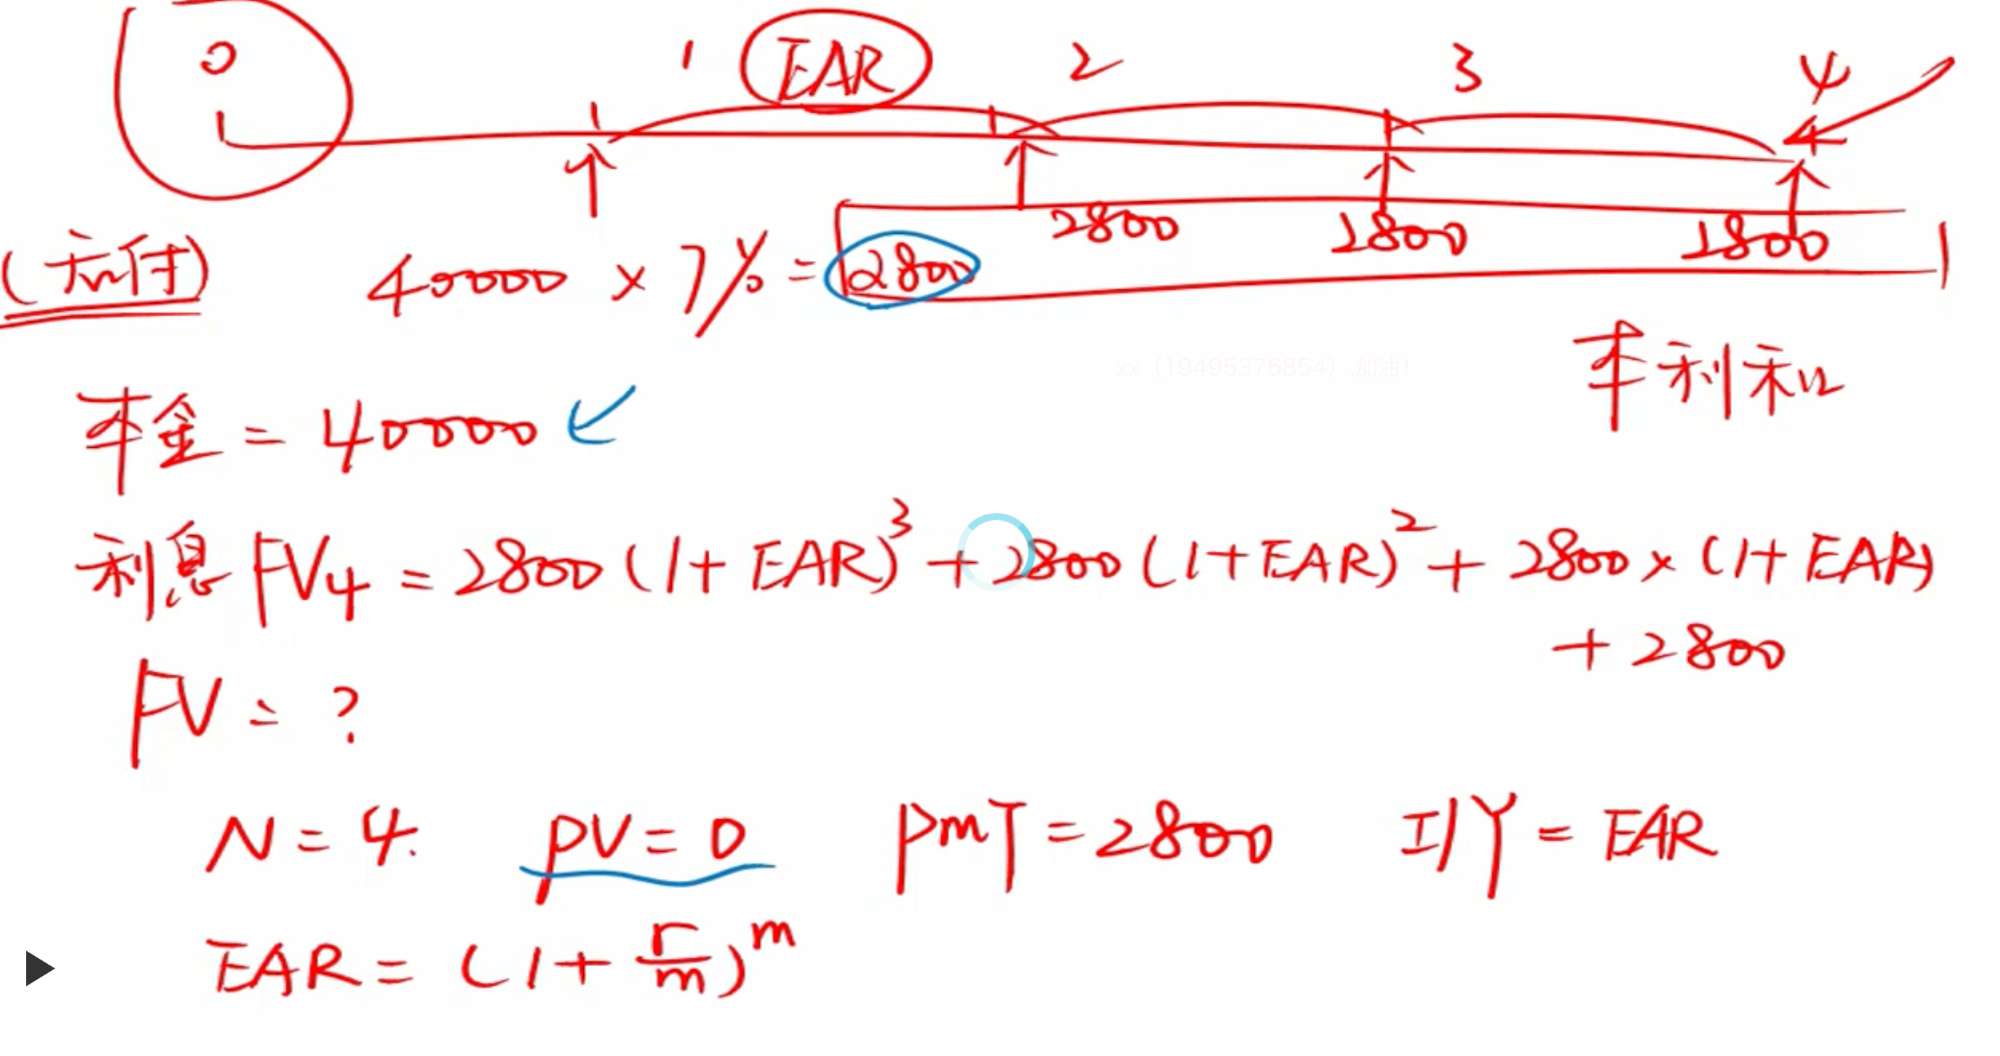 0 1 EAR 2 3 4
2800 2800 2800
40000 × 7% = 2800
本利和
本金 = 40000
利息 FV4 = 2800 (1+ EAR)³ + 2800 (1+EAR)² + 2800 × (1+ EAR)
+ 2800
FV = ?
N = 4. PV = 0 PMT = 2800 I/Y = EAR
EAR = (1 + r/m)ᵐ